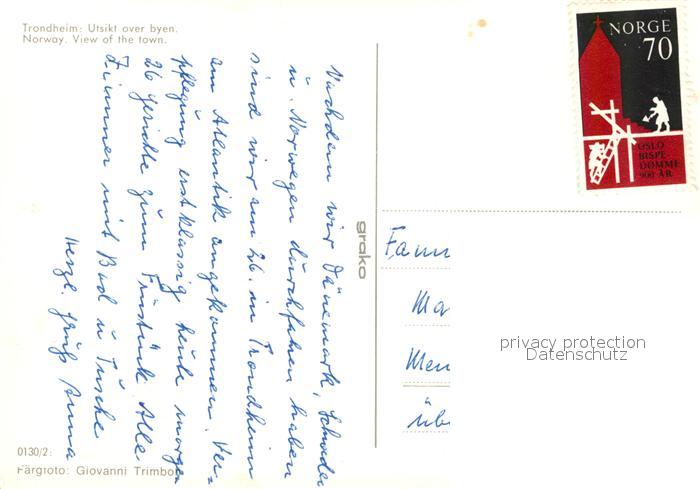 Trondheim: Utsikt over byen.
Norway. View of the town.
Nachdem wir Dänemark, Schweden
u. Norwegen durchfahren haben
sind wir am 26. in Trondheim
am Atlantik angekommen. Ver-
pflegung erstklassig heute morgen
26 gerichte zum Früstück. Alle
Zimmer mit Bad u Dusche
Herzl. Grüß Anna
grako
NORGE
70
OSLO
BISPE-
DØMME
900 ÅR
Fam
Ma
Men
üb
privacy protection
Datenschutz
0130/2:
Färgfoto: Giovanni Trimboli